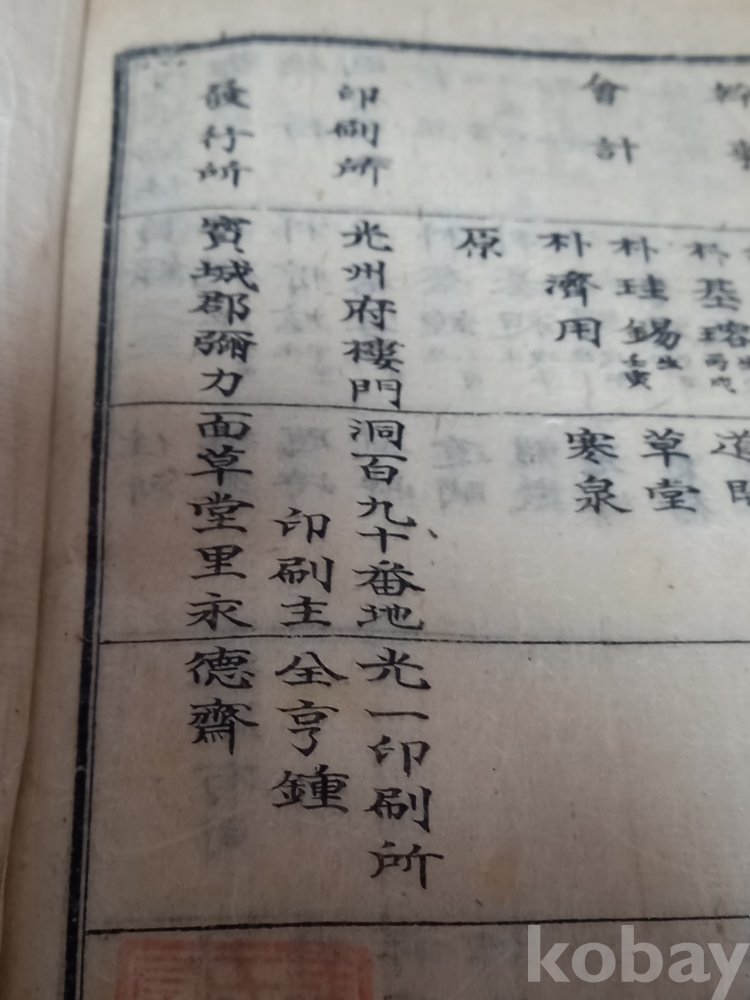 朴基
朴珪錫 生壬寅 草堂
會計 朴濟用 寒泉
原
印刷所 光州府樓門洞百九十番地 光一印刷所
印刷主 全亨鍾
發行所 寶城郡彌力面草堂里永德齋
kobay